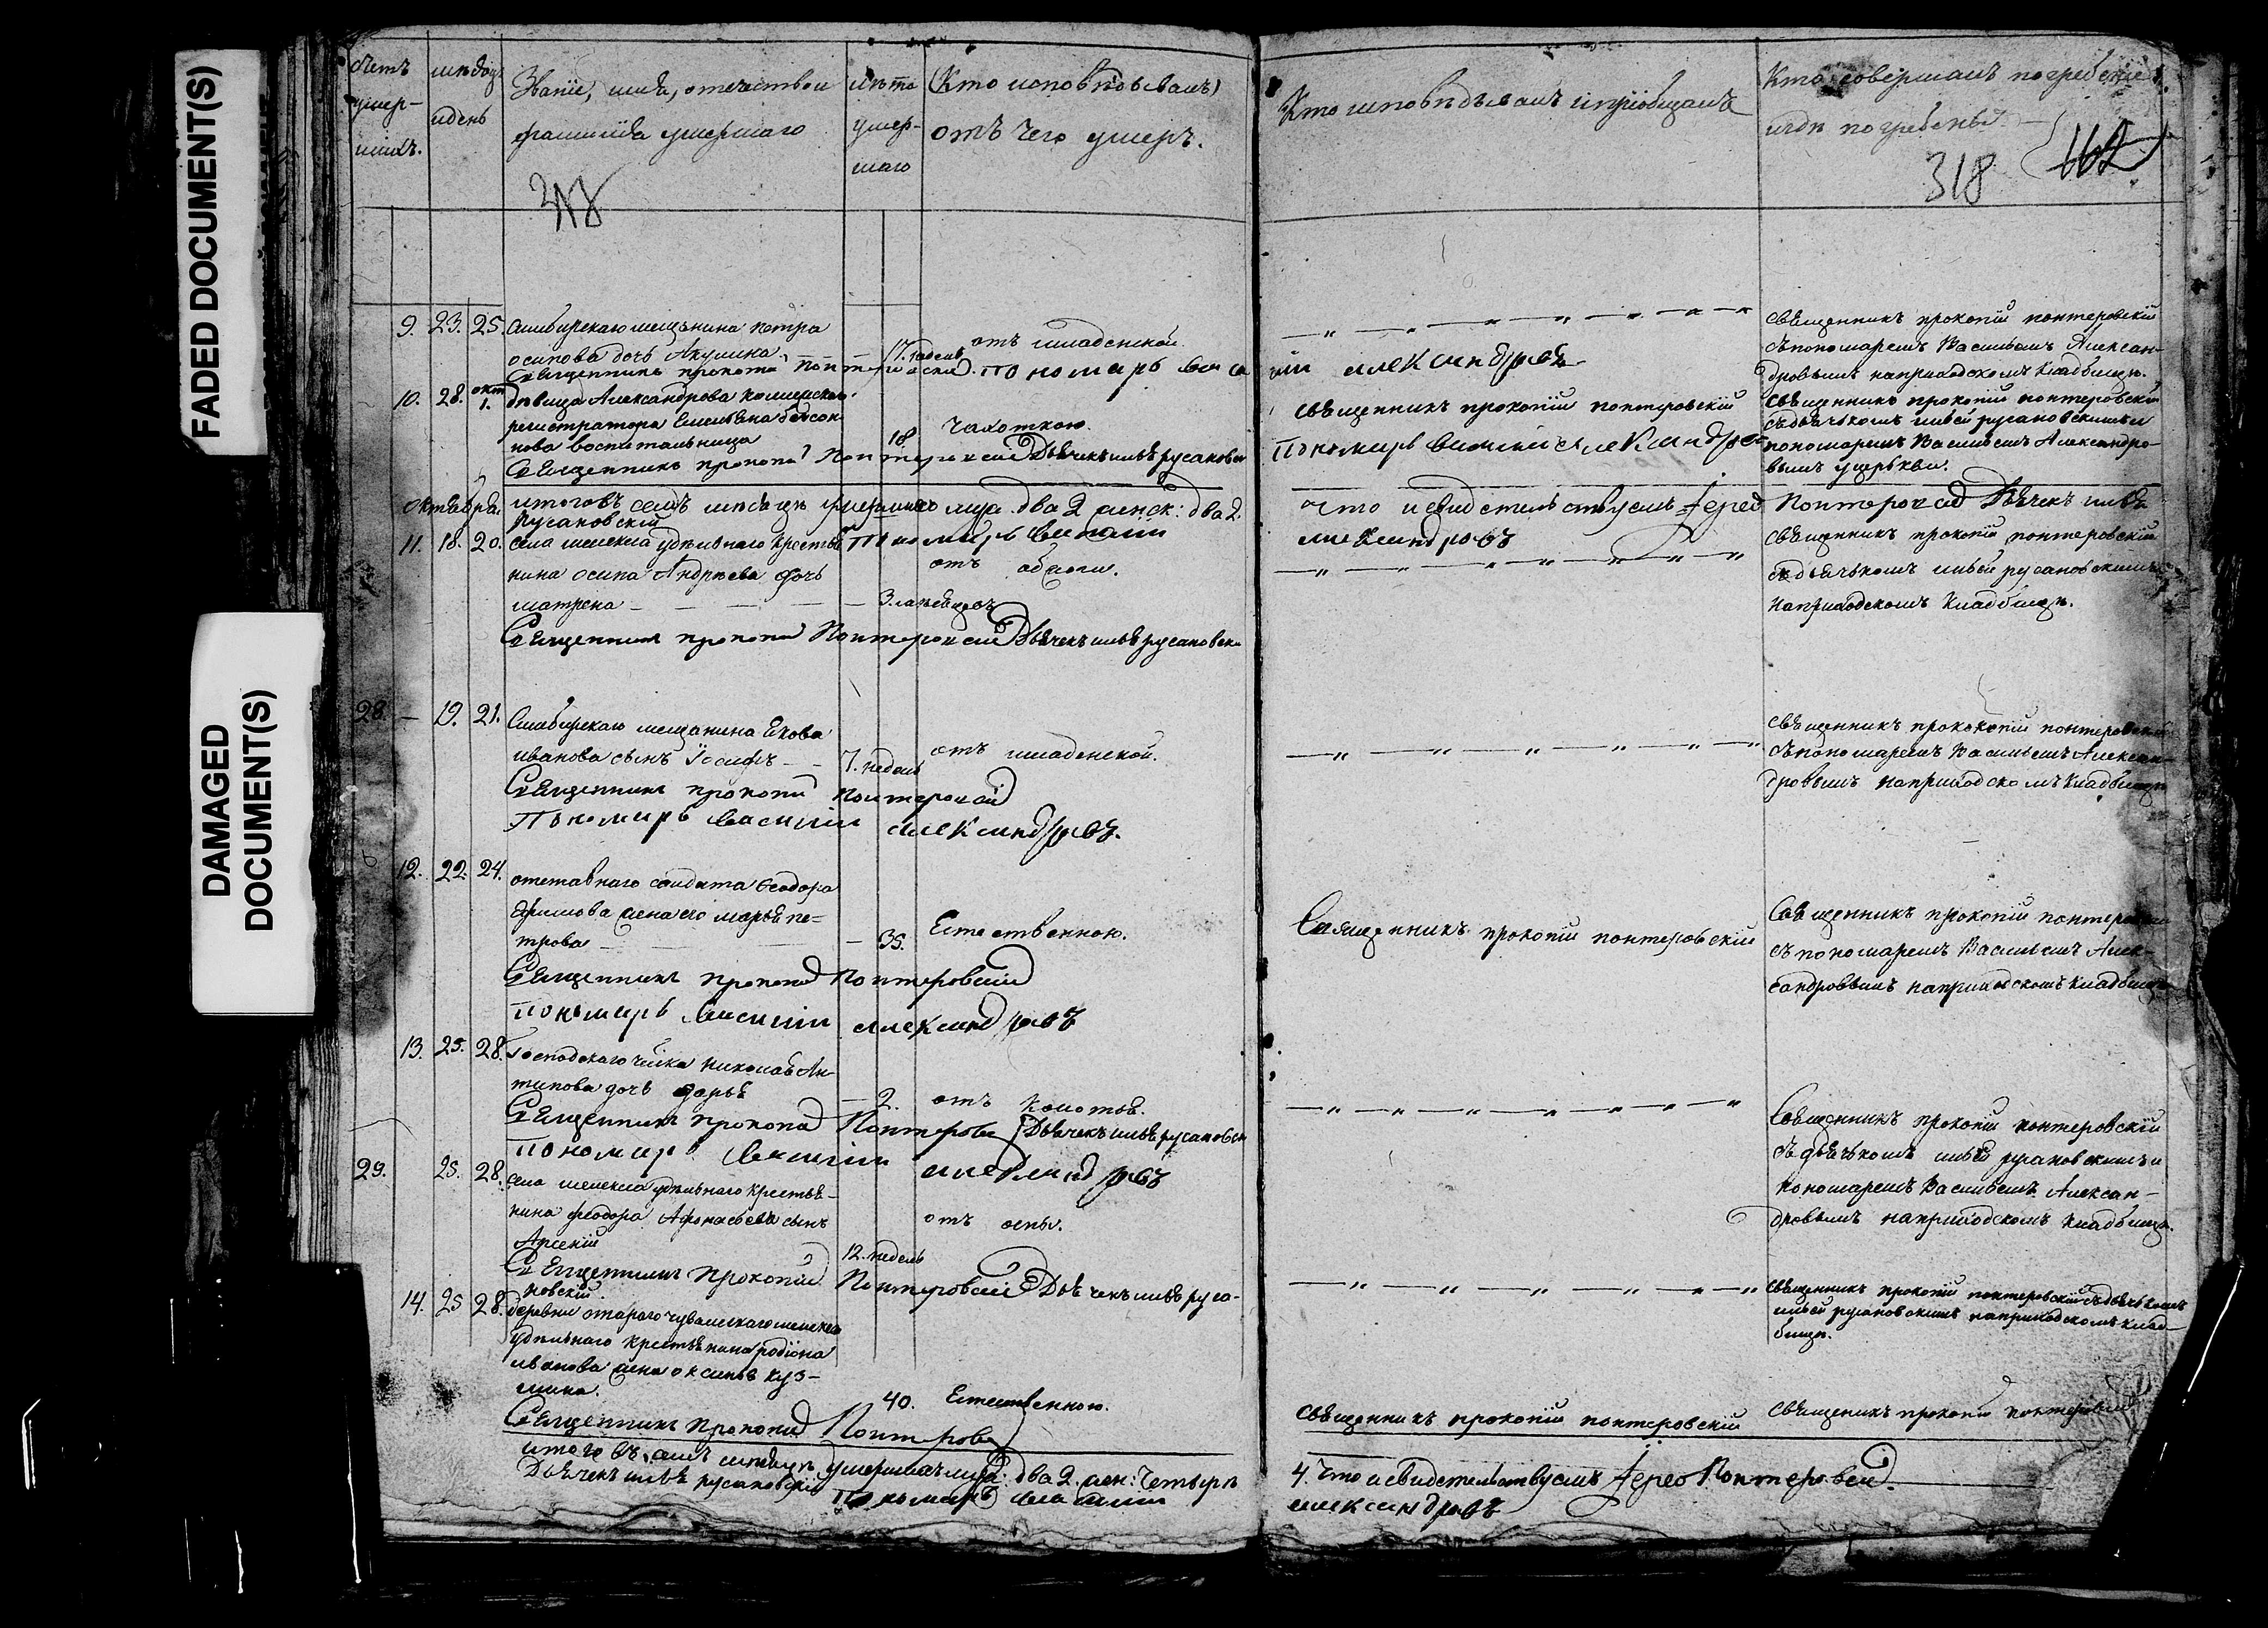 FADED DOCUMENT(S)
DAMAGED
DOCUMENT(S)
счетъ
умер-
шихъ.
мѣсяцъ
и день
Званіе, имя, отечество и
фамилія умершаго
лѣта
умер-
шаго
Кто исповѣдывалъ
отъ чего умеръ.
Кто исповѣдывалъ и пріобщалъ
Кто совершалъ погребеніе
и гдѣ погребены.
318
162
9. 23. 25. Симбирскаго мещанина петра
осипова дочь Акулина
17. недель
отъ младенской.
священникъ прокопій понтеровскій
съ пономаремъ Васильемъ Алексан-
дровымъ на приходскомъ кладбищѣ.
Священникъ прокопій понтеровскій. пономарь васи
лій александровъ
10. 28. окт 1. дѣвица Александрова
регистратора
воспитальница
18.
Чахоткою.
священникъ прокопій понтеровскій
священникъ прокопій понтеровскій
съ дьячькомъ ильей русановскимъ и
пономаремъ Васильемъ Александро-
вымъ у церькви.
Священникъ прокопій Понтеровскій Дьячекъ илья русановск
Пономарь василій александро
октября.
итого въ семъ мѣсяцѣ умершихъ муж. два 2 женск: два 2.
Что и свидетельствуемъ Іерей Понтеровскій Дьячек илья
Русановскій
Пономарь василій
александровъ
11. 18. 20. села шелекса удѣльнаго крестья
нина осипа Андреева дочь
матрена
3.
отъ
священникъ прокопій понтеровскій
съ дьячькомъ ильей русановскимъ
на приходскомъ кладбищѣ.
Священникъ прокопій Понтеровскій Дьячекъ илья русановски
28 — 19. 21. Симбирскаго мещанина Якова
иванова сынъ Іосифъ
7. недель
отъ младенской.
священникъ прокопій понтеровскій
съ пономаремъ Васильемъ Алексан-
дровымъ на приходскомъ кладбищѣ
Священникъ прокопій Понтеровскій
Пономарь василій александровъ.
12. 22. 24. отставнаго солдата Ѳеодора
Ефимова жена его марья пе-
трова
35.
Естественною.
Священникъ прокопій понтеровскій
Священникъ прокопій понтеровскій
съ пономаремъ Васильемъ Алек-
сандровымъ на приходскомъ кладбищѣ
Священникъ прокопій Понтеровскій
Пономарь василій александровъ
13. 25. 28. Господскаго чл҃вка николая Ан-
типова дочь дарья
2.
отъ
Священникъ прокопій понтеровскій
съ дьячькомъ ильей русановскимъ и
пономаремъ Васильемъ Алексан-
дровымъ на приходскомъ кладбищѣ.
Священникъ прокопій Понтеровс Дьячекъ илья русановск
Пономарь василій александровъ
29. 25. 28. села шелекса удѣльнаго крестья-
нина Феодора Афонасьева сынъ
Арсеній
12. недель
отъ оспы.
священникъ прокопій понтеровскій съ дьячькомъ
ильей русановскимъ на приходскомъ клад-
бищѣ.
Священникъ Прокопій Понтеровскій Дьячекъ илья руса-
новскій
14. 25 28. деревни стараго чувашскаго шелекса
удѣльнаго крестьянина родіона
иванова жена оксинья куз-
мина.
40.
Естественною.
священникъ прокопій понтеровскій
священникъ прокопій понтеровскій
Священникъ Прокопій Понтеровс
итого въ семъ мѣсяцѣ умершихъ муж: два 2. жен: Четыре
4. Что и свидетельствуемъ Іерей Понтеровскій.
Дьячекъ илья русановскій Пономарь василій
александровъ